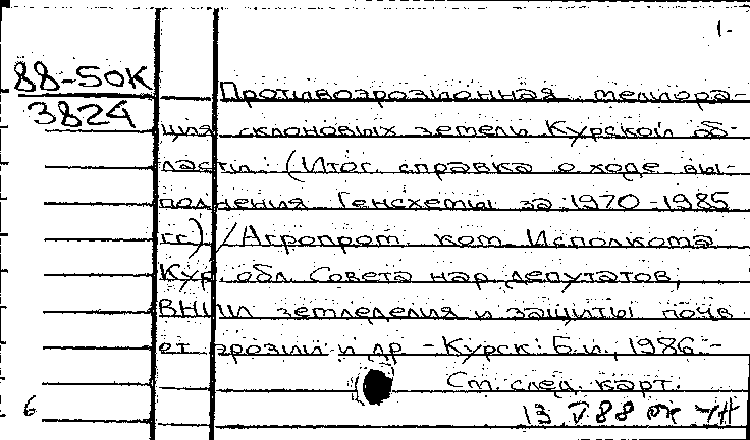 1-
88-50К
3824
Противоэрозионная мелиора-
ция склоновых земель Курской об-
ласти: (Итог. справка о ходе вы-
полнения Генсхемы за 1970-1985
гг) / Агропром. ком. Исполкома
Кур. обл. Совета нар. депутатов,
ВНИИ земледелия и защиты почв
от эрозии и др - Курск: Б.и., 1986.-
См. след. карт.
6
13 V 88